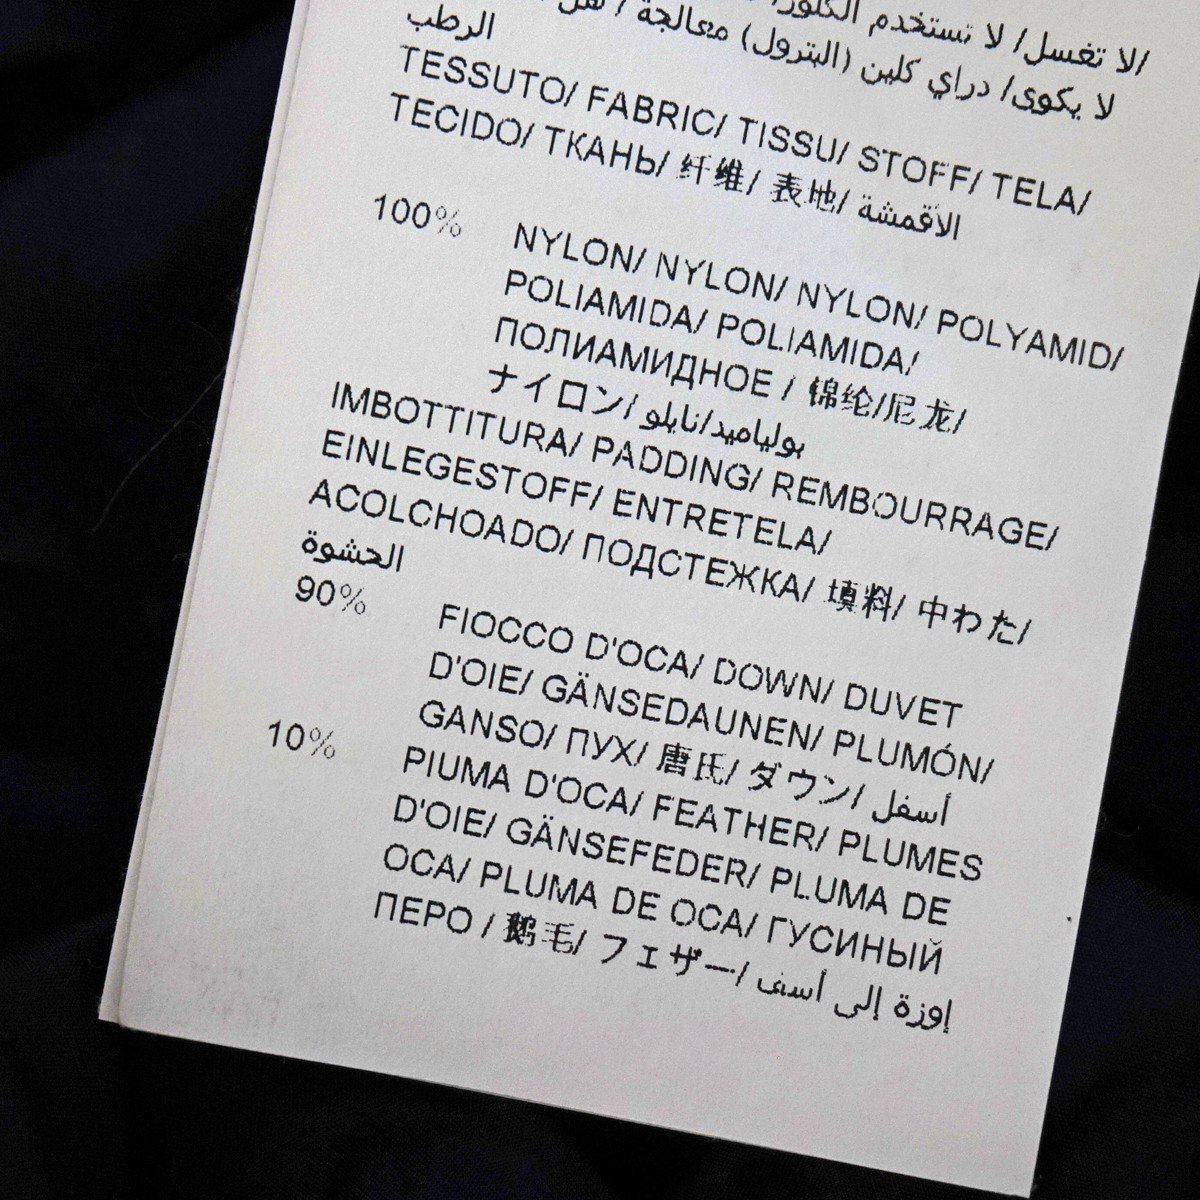 /لا تغسل/ لا تستخدم الكلور/
لا يكوى/ دراي كلين (البترول) معالجة /
الرطب
TESSUTO/ FABRIC/ TISSU/ STOFF/ TELA/
TECIDO/ ТКАНЬ/ 纤维/ 表地/ الأقمشة
100% NYLON/ NYLON/ NYLON/ POLYAMID/
POLIAMIDA/ POLIAMIDA/
ПОЛИАМИДНОЕ / 锦纶/尼龙/
ナイロン/ بولياميد/نايلو
IMBOTTITURA/ PADDING/ REMBOURRAGE/
EINLEGESTOFF/ ENTRETELA/
ACOLCHOADO/ ПОДСТЕЖКА/ 填料/ 中わた/
الحشوة
90% FIOCCO D'OCA/ DOWN/ DUVET
D'OIE/ GÄNSEDAUNEN/ PLUMÓN/
GANSO/ ПУХ/ 唐氏/ ダウン/ أسفل
10% PIUMA D'OCA/ FEATHER/ PLUMES
D'OIE/ GÄNSEFEDER/ PLUMA DE
OCA/ PLUMA DE OCA/ ГУСИНЫЙ
ПЕРО / 鹅毛/ フェザー/ إوزة إلى أسف